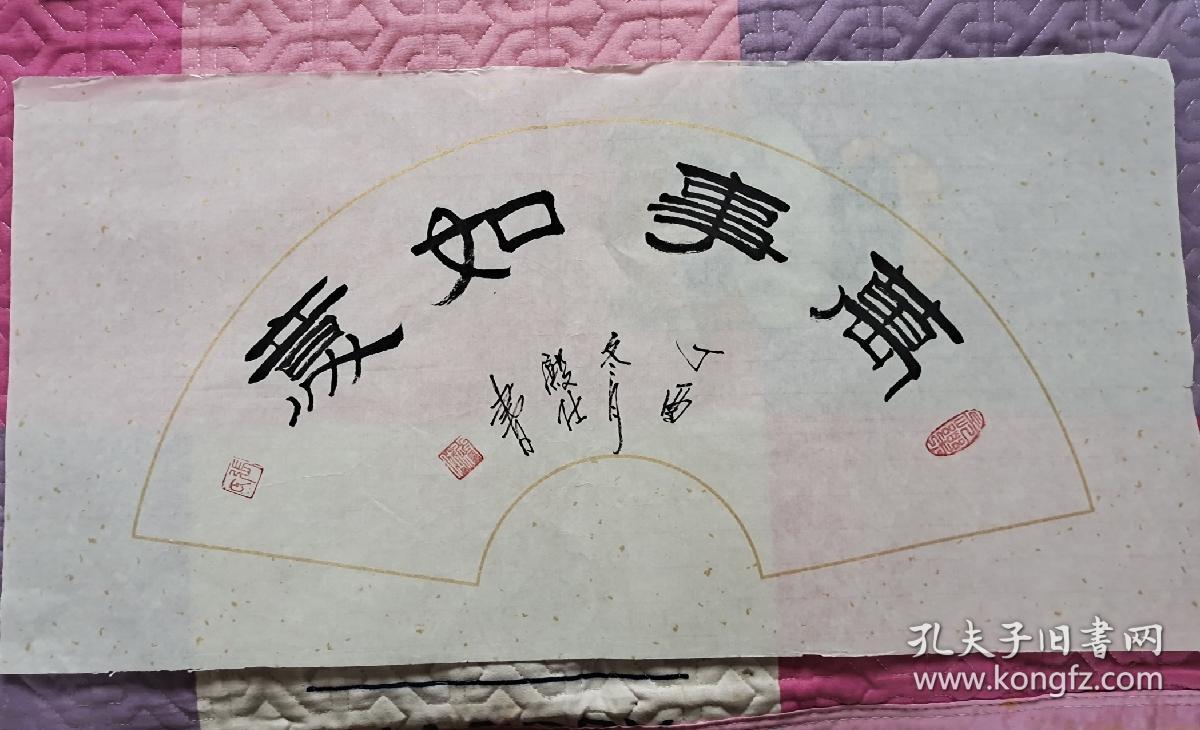 萬事如意
丁酉
冬月
殿仕
書
孔夫子旧書网
www.kongfz.com